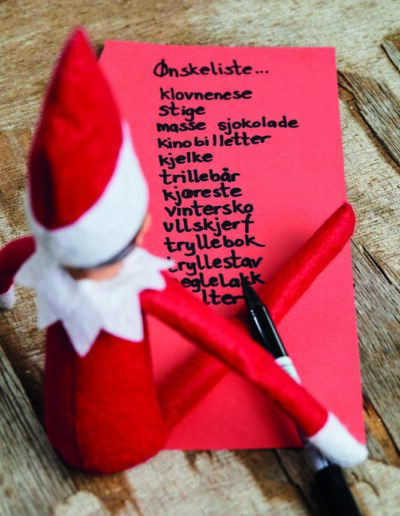 Ønskeliste...
klovnenese
stige
masse sjokolade
kinobilletter
kjelke
trillebår
kjæreste
vintersko
ullskjerf
tryllebok
tryllestav